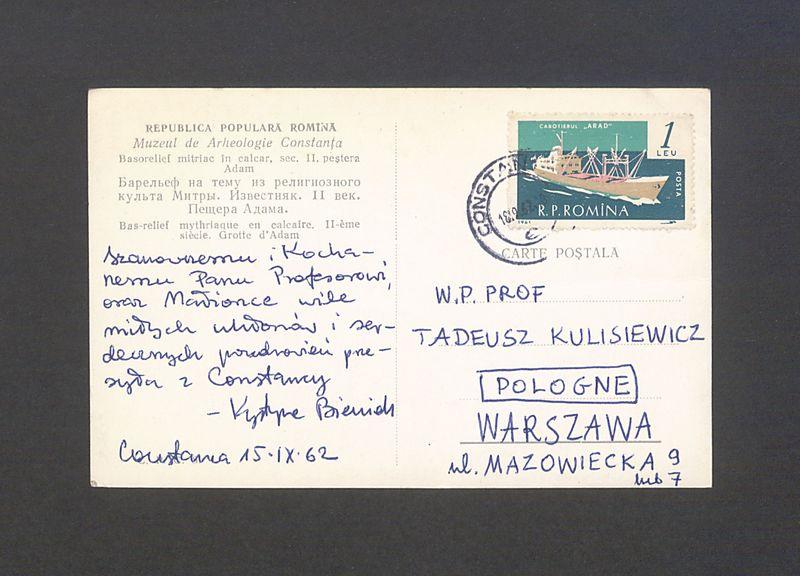 REPUBLICA POPULARĂ ROMÎNĂ
Muzeul de Arheologie Constanța
Basorelief mitriac în calcar, sec. II, peștera
Adam
Барельеф на тему из религиозного
культа Митры. Известняк. II век.
Пещера Адама.
Bas-relief mythriaque en calcaire. II-ème
siècle. Grotte d'Adam
Szanownemu i Kocha-
nemu Panu Profesorowi,
oraz Małżonce wiele
miłych ukłonów i ser-
decznych pozdrowień prze-
syła z Constancy
- Krystyna
Constanca 15.IX.62
CABOTIERUL „ARAD"
1
LEU
POSTA
R.P. ROMÎNA
CONSTANȚA
CARTE POȘTALĂ
W.P. PROF
TADEUSZ KULISIEWICZ
POLOGNE
WARSZAWA
ul. MAZOWIECKA 9
lub 7